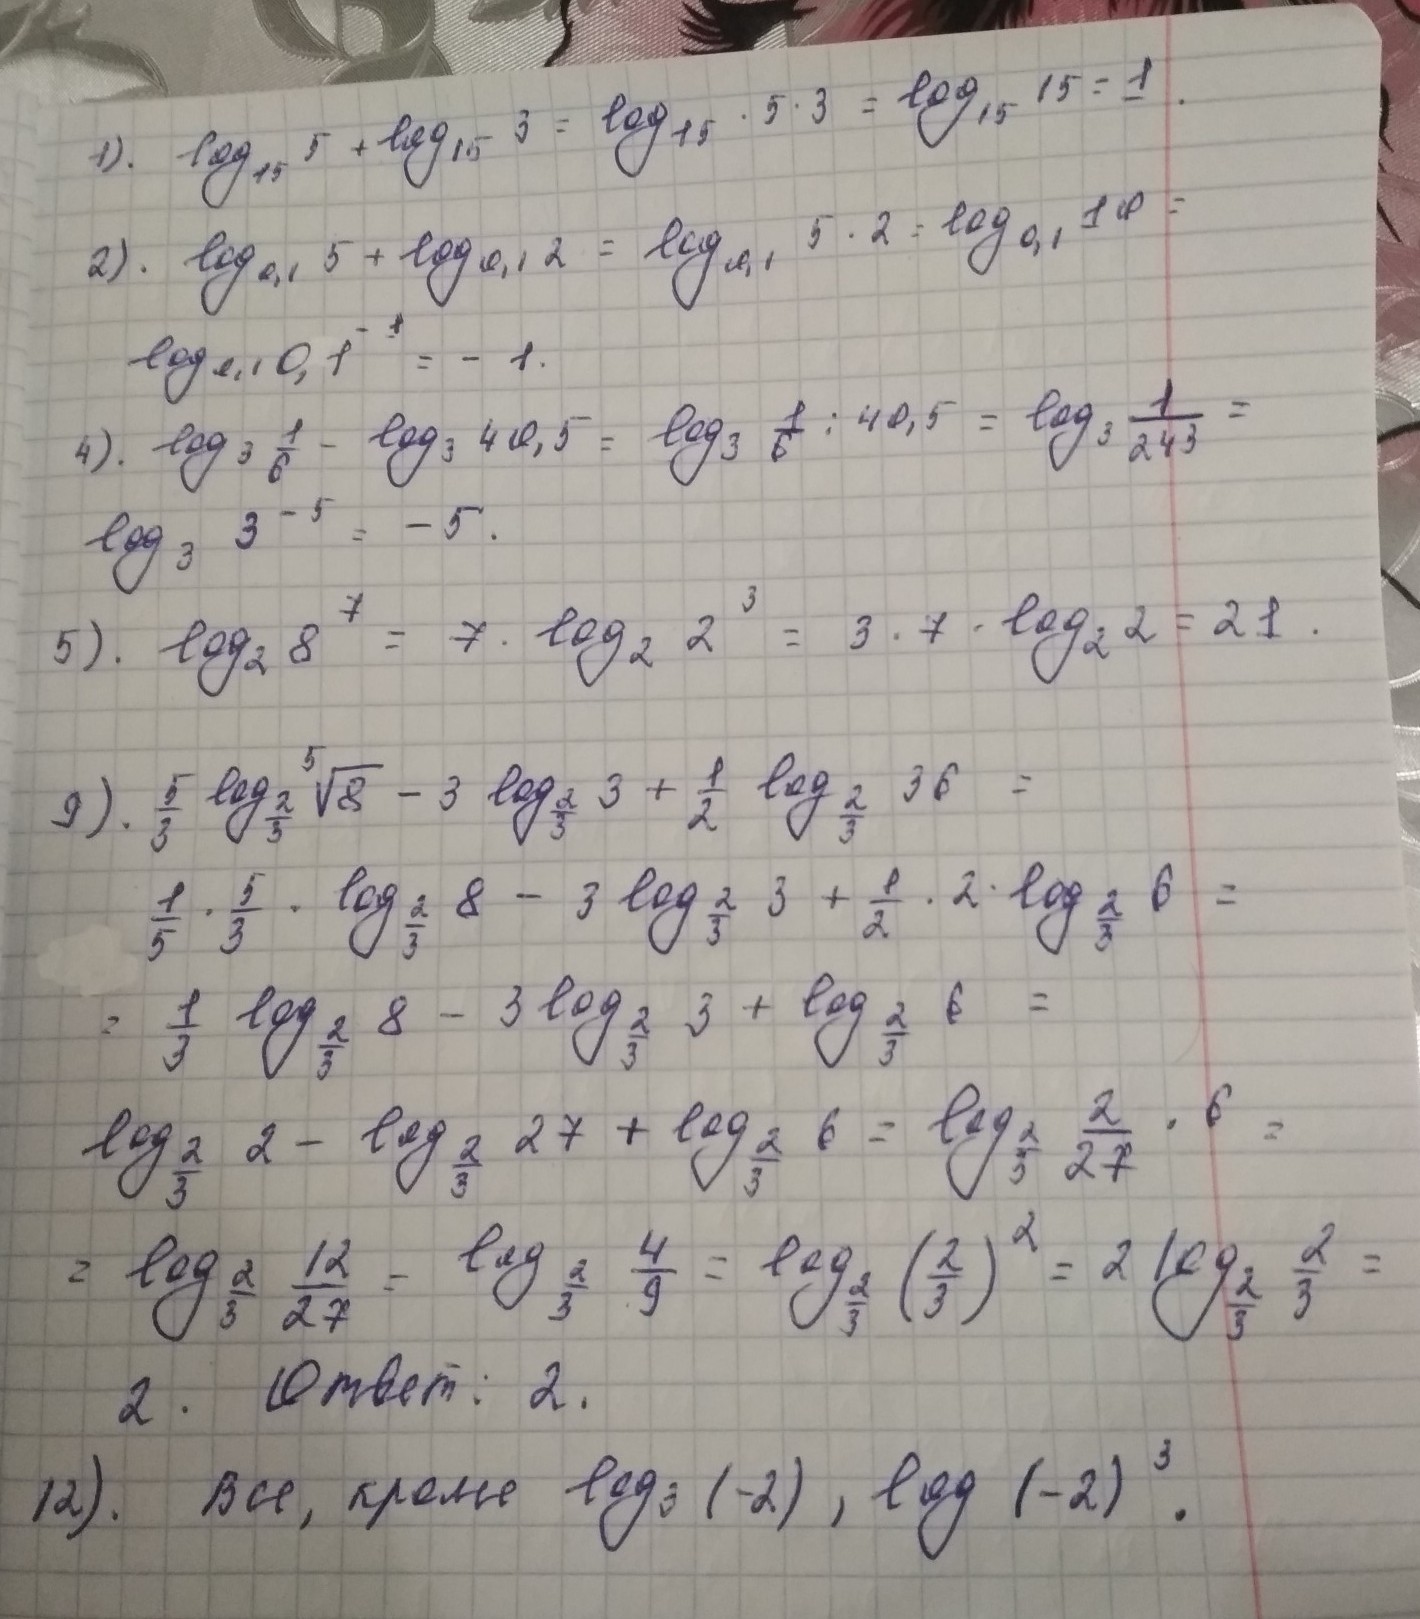 1). log₁₅ 5 + log₁₅ 3 = log₁₅ · 5 · 3 = log₁₅ 15 = 1.
2). log₀,₁ 5 + log₀,₁ 2 = log₀,₁ 5 · 2 = log₀,₁ 10 =
log₀,₁ 0,1⁻¹ = - 1.
4). log₃ 1/6 - log₃ 40,5 = log₃ 1/6 : 40,5 = log₃ 1/243 =
log₃ 3⁻⁵ = -5.
5). log₂ 8⁷ = 7 · log₂ 2³ = 3 · 7 · log₂ 2 = 21.
9). 5/3 log_{2/3} ⁵√8 - 3 log_{2/3} 3 + 1/2 log_{2/3} 36 =
1/5 · 5/3 · log_{2/3} 8 - 3 log_{2/3} 3 + 1/2 · 2 · log_{2/3} 6 =
= 1/3 log_{2/3} 8 - 3 log_{2/3} 3 + log_{2/3} 6 =
log_{2/3} 2 - log_{2/3} 27 + log_{2/3} 6 = log_{2/3} 2/27 · 6 =
= log_{2/3} 12/27 = log_{2/3} 4/9 = log_{2/3} (2/3)² = 2 log_{2/3} 2/3 =
2. Ответ: 2.
12). Все, кроме log₃ (-2), log (-2)³.